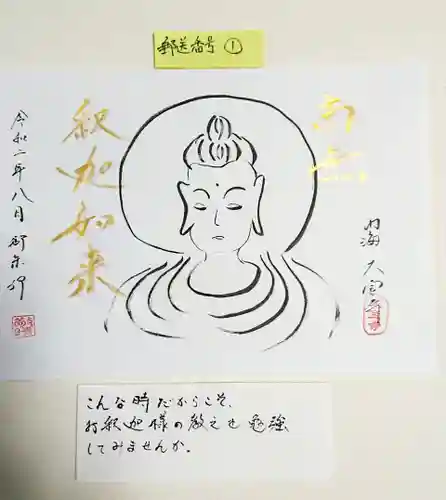 郵送番号 ①
南無
釈迦如来
令和二年八月 御朱印
内海 大宝寺
こんな時だからこそ、
お釈迦様の教えを勉強
してみませんか。